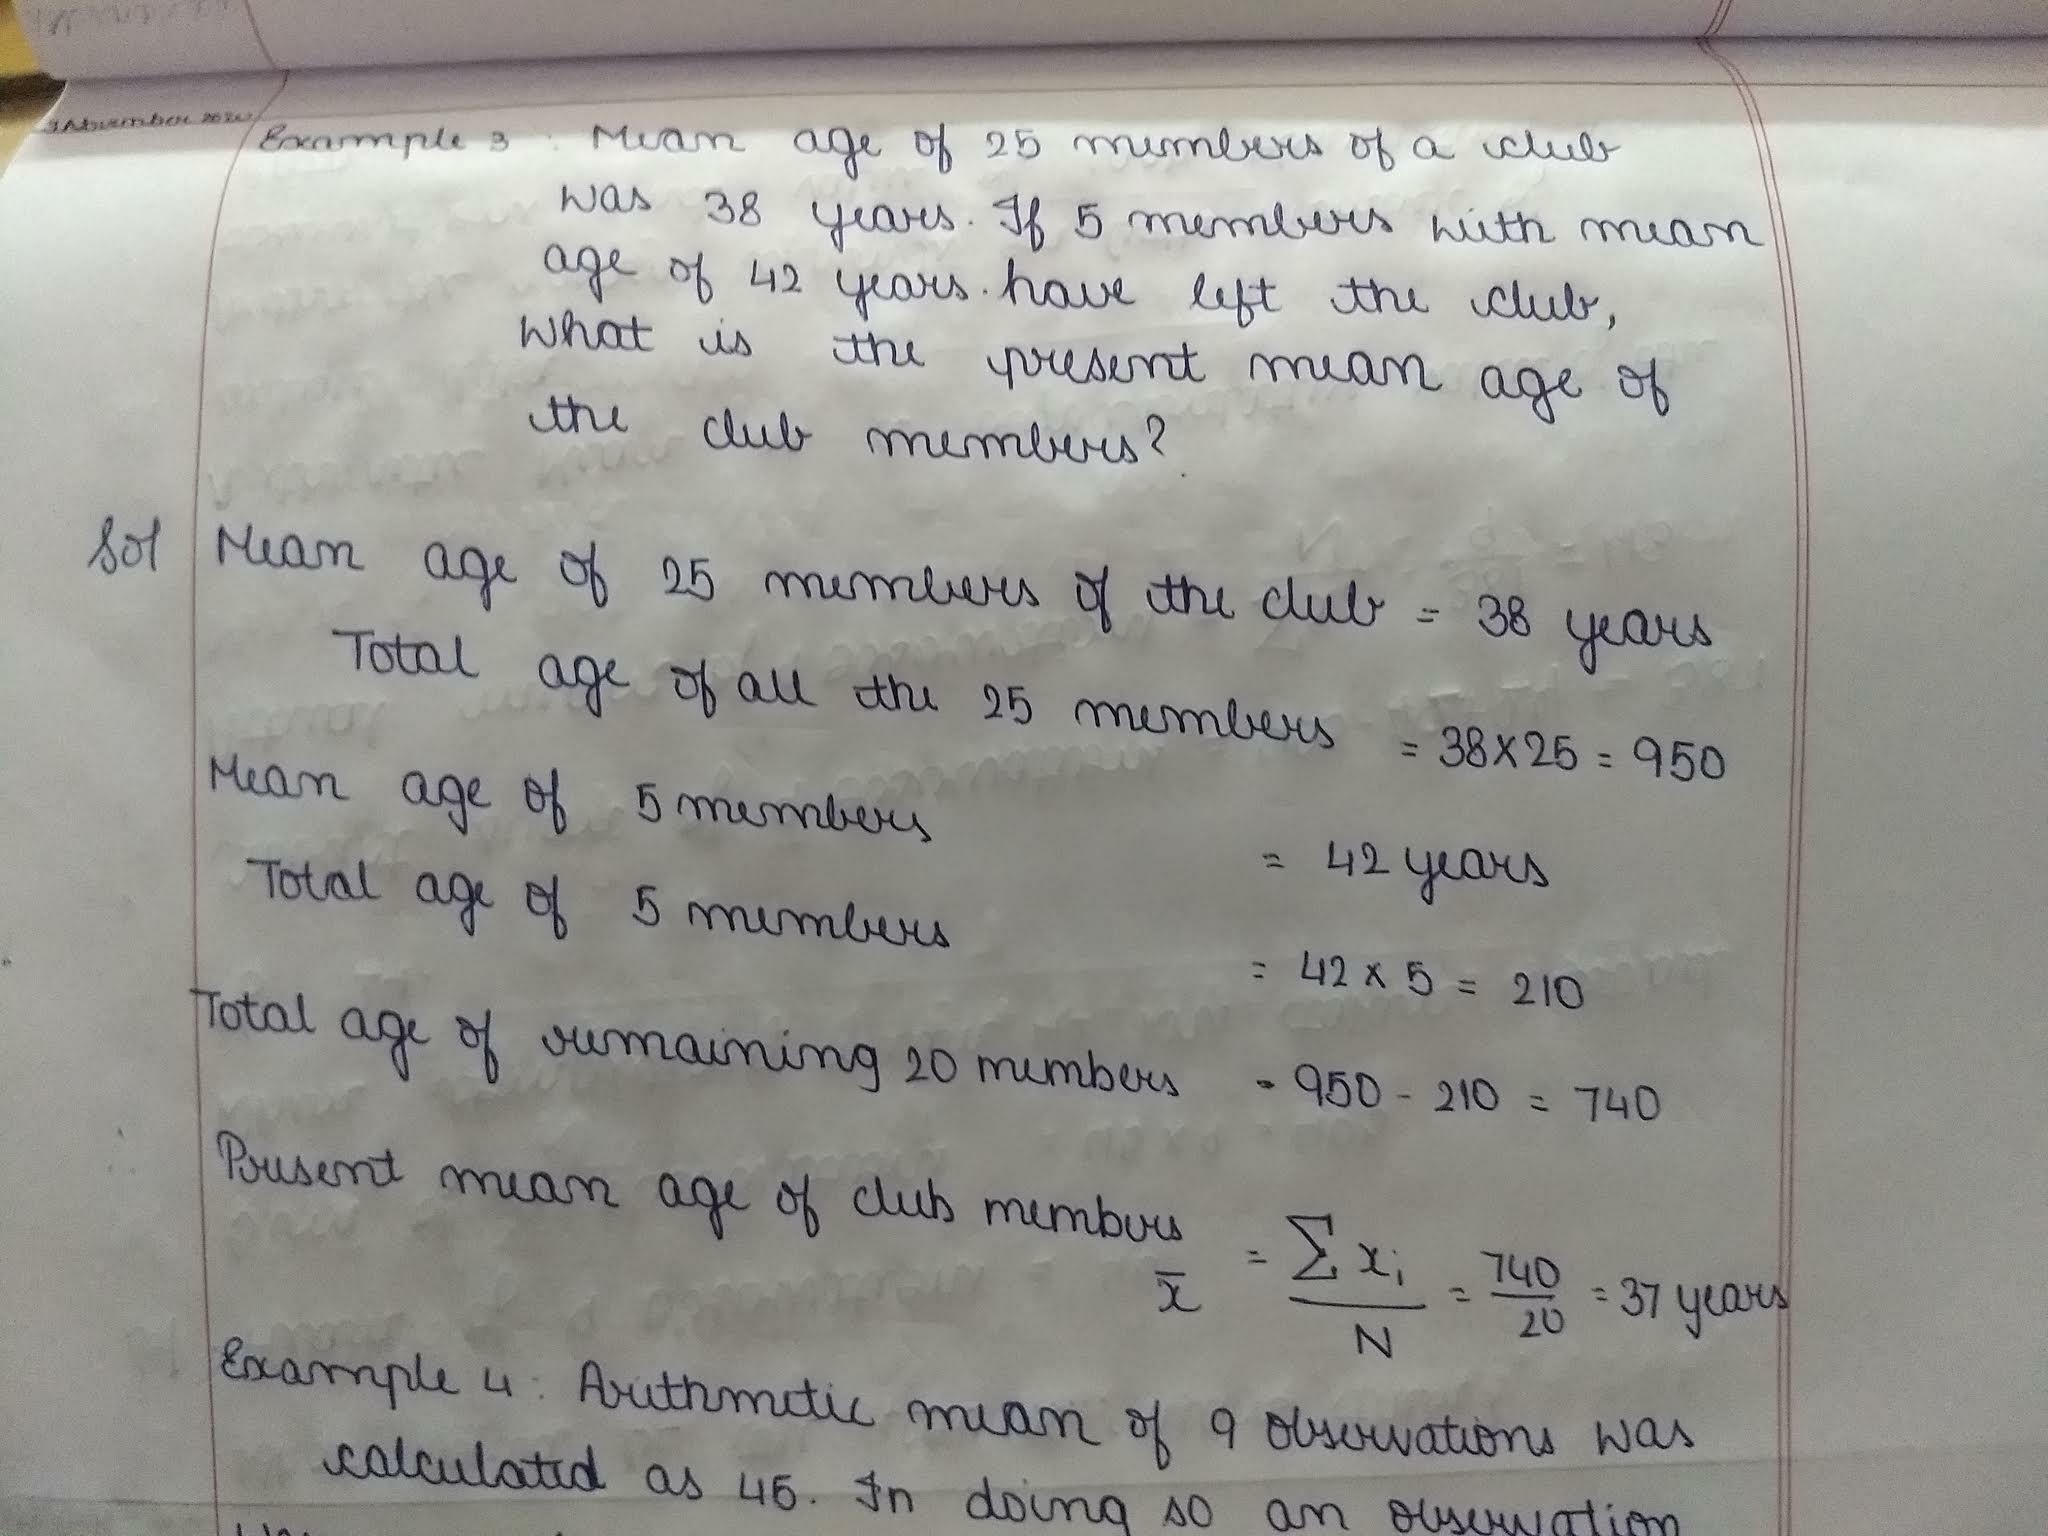 Example 3 : Mean age of 25 members of a club
was 38 years. If 5 members with mean
age of 42 years. have left the club,
What is the present mean age of
the club members?
Sol Mean age of 25 members of the club = 38 years
Total age of all the 25 members = 38x25 = 950
Mean age of 5 members = 42 years
Total age of 5 members = 42 x 5 = 210
Total age of remaining 20 members = 950 - 210 = 740
Present mean age of club members
x̄ = Σxi/N = 740/20 = 37 years
Example 4 : Arithmetic mean of 9 observations was
calculated as 45. In doing so an observation